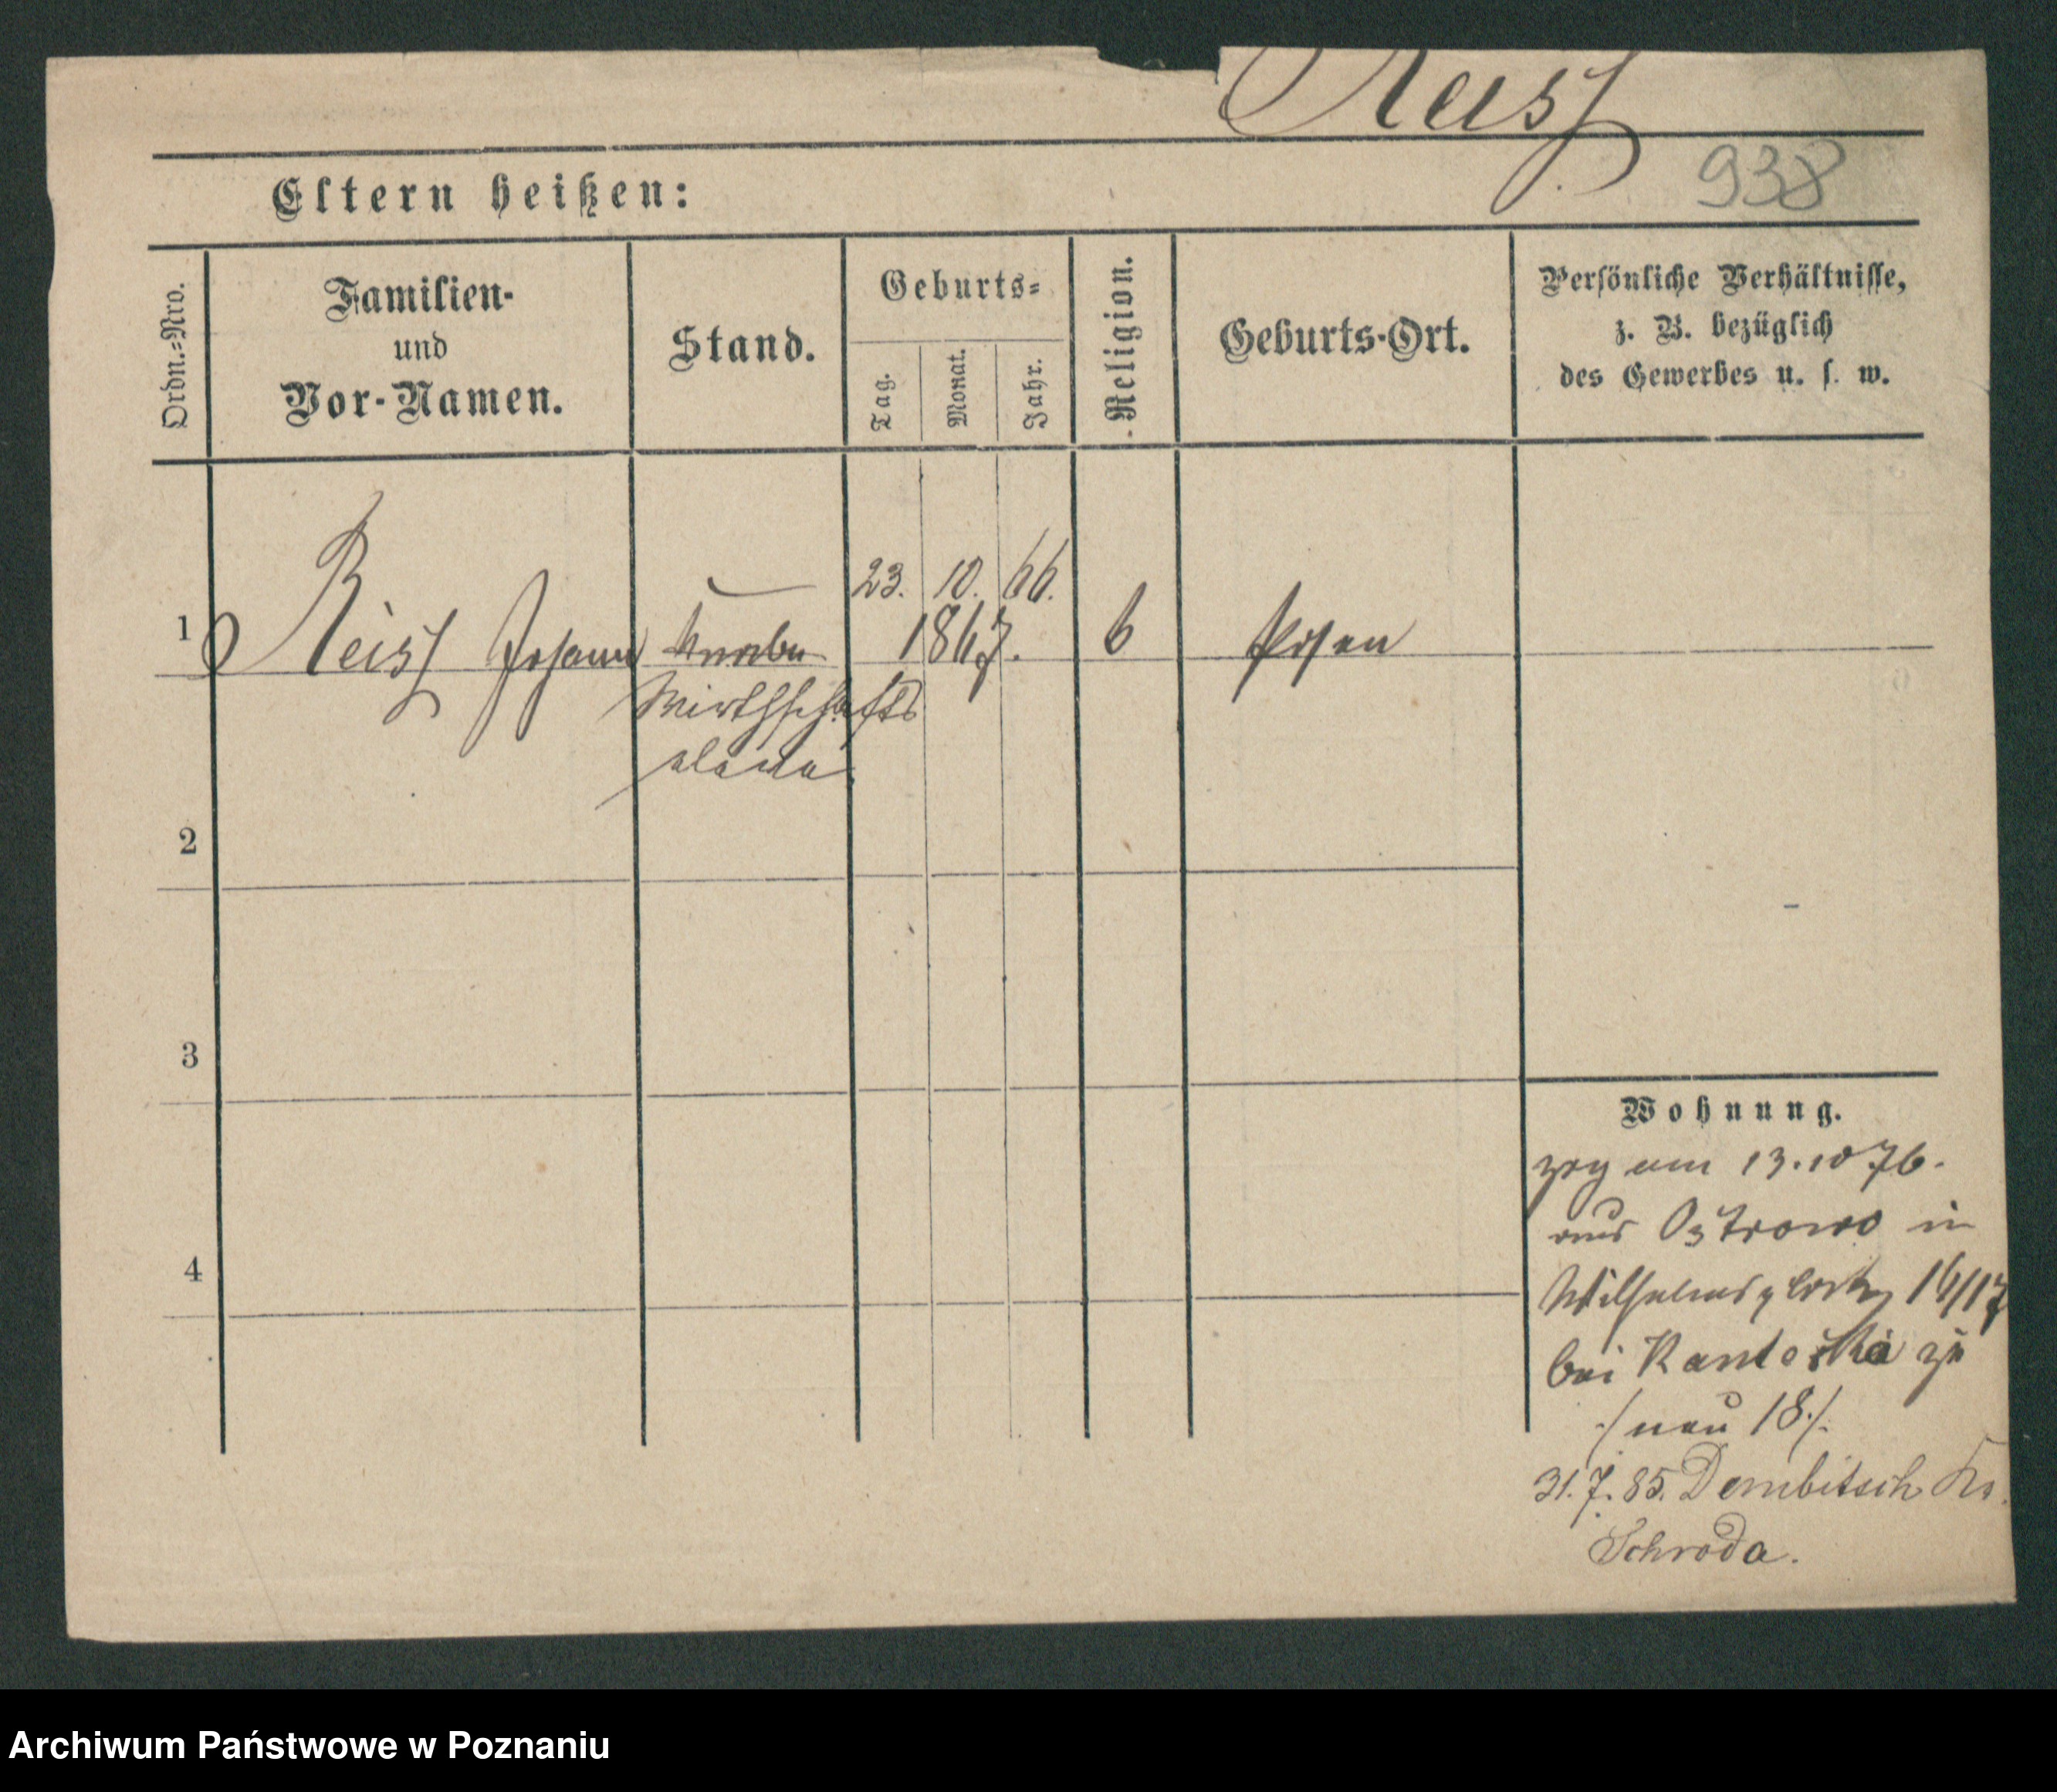 Reiss
938
Eltern heißen:
Ordn.=Nro.
Familien-
und
Vor-Namen.
Stand.
Geburts=
Tag.
Monat.
Jahr.
Religion.
Geburts-Ort.
Persönliche Verhältnisse,
z. B. bezüglich
des Gewerbes u. s. w.
23. 10. 66.
1 Reiss Johann Knabe 1867. 6 Posen
Wirthschafts
eleve
2
3
4
Wohnung.
zog am 13.10 76.
aus Ostrowo in
Wilhelmsplatz 16/17
bei zu
./ neu 18 /.
31.7.85. Dembitsch Krs.
Schroda.
Archiwum Państwowe w Poznaniu